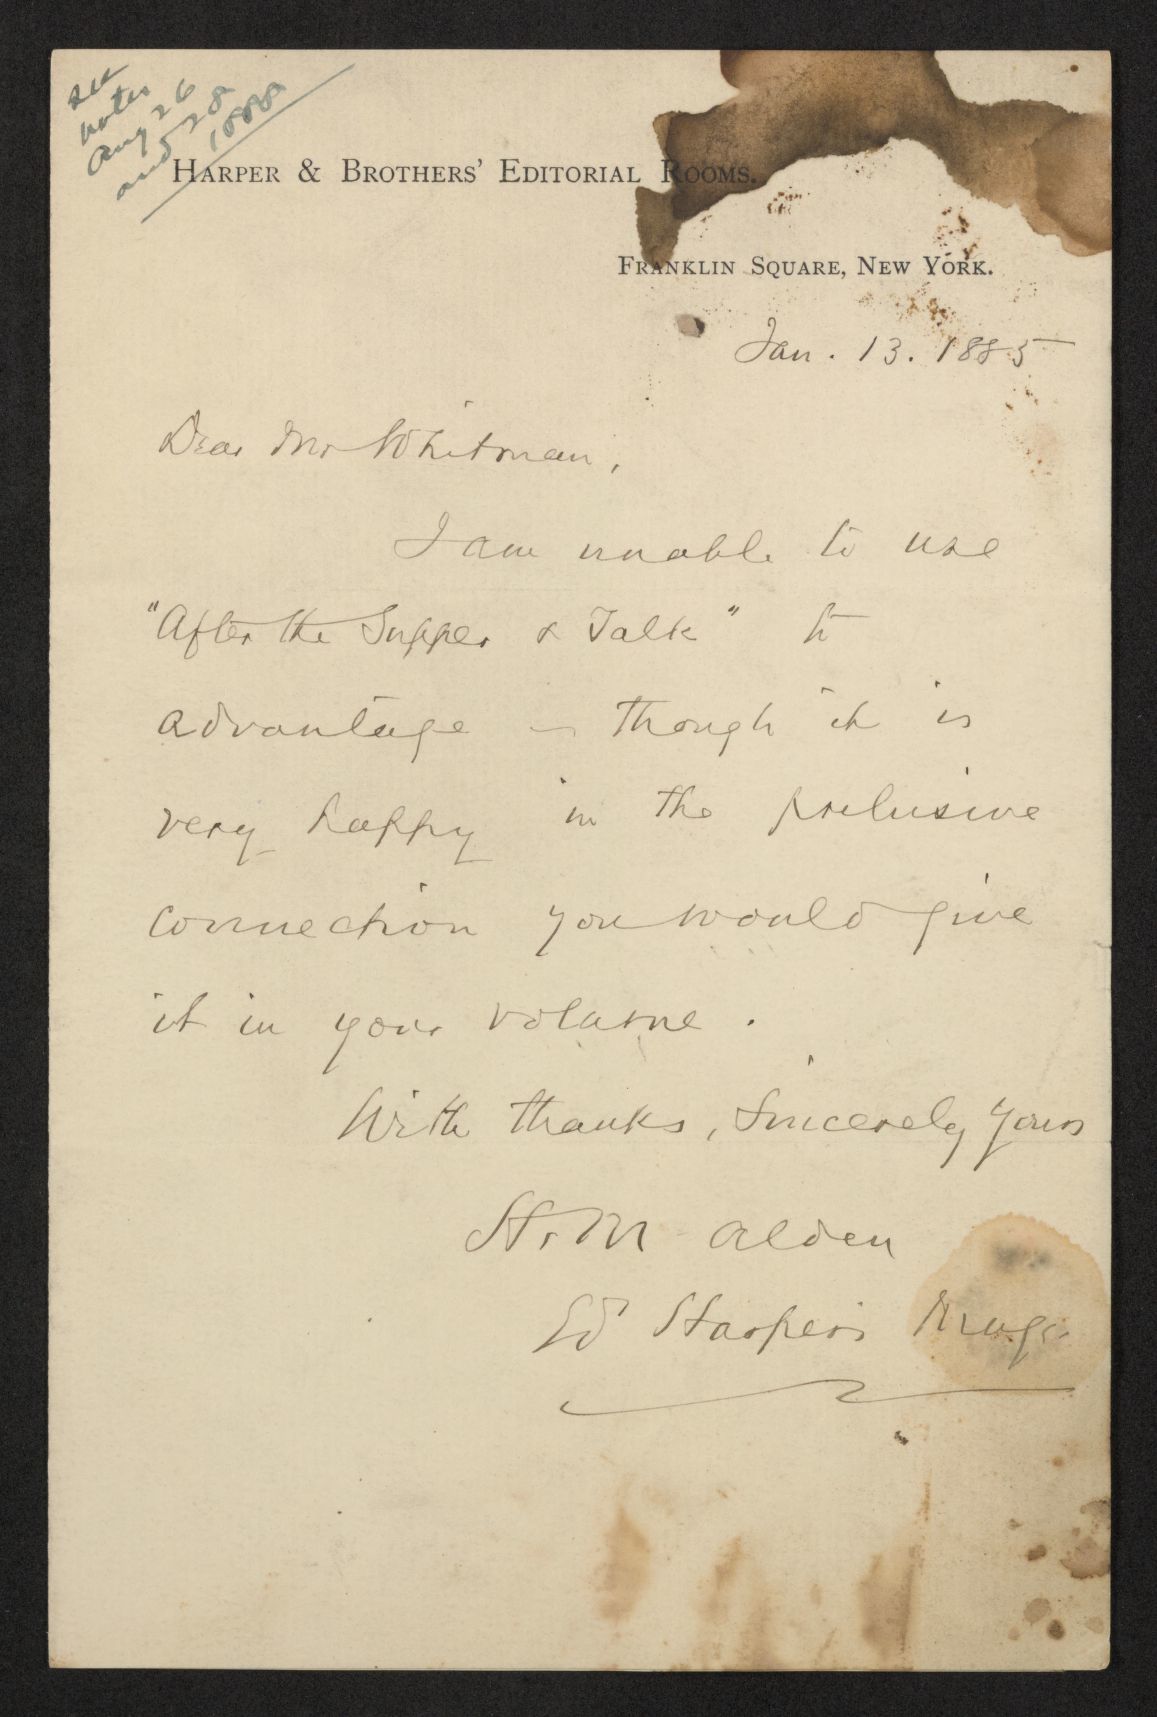 see
notes
Aug 26
and 28
1888
HARPER & BROTHERS' EDITORIAL ROOMS.
FRANKLIN SQUARE, NEW YORK.
Jan. 13. 1885
Dear Mr Whitman,
I am unable to use
"After the Supper & Talk" to
advantage — though it is
very happy in the prelusive
connection you would give
it in your volume.
With thanks, Sincerely Yours
H. M Alden
Ed Harper's Maga